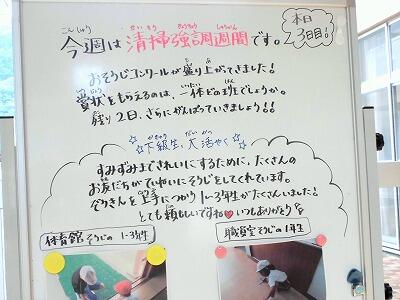 今週は清掃強調週間です。
こんしゅう せいそう きょうちょう しゅうかん
本日
3日目!
おそうじコンクールが盛り上がってきました!
賞状をもらえるのは、一体どの班でしょうか。
残り2日、さらにがんばっていきましょう!!
☆☆下級生、大活やく☆☆
すみずみまできれいにするために、たくさんの
お友だちがていねいにそうじをしてくれています。
ぞうきんを上手につかう1~3年生がたくさんいました!
とても頼もしいですね♥いつもありがとう
体育館そうじの1-3年生
職員室そうじの1年生